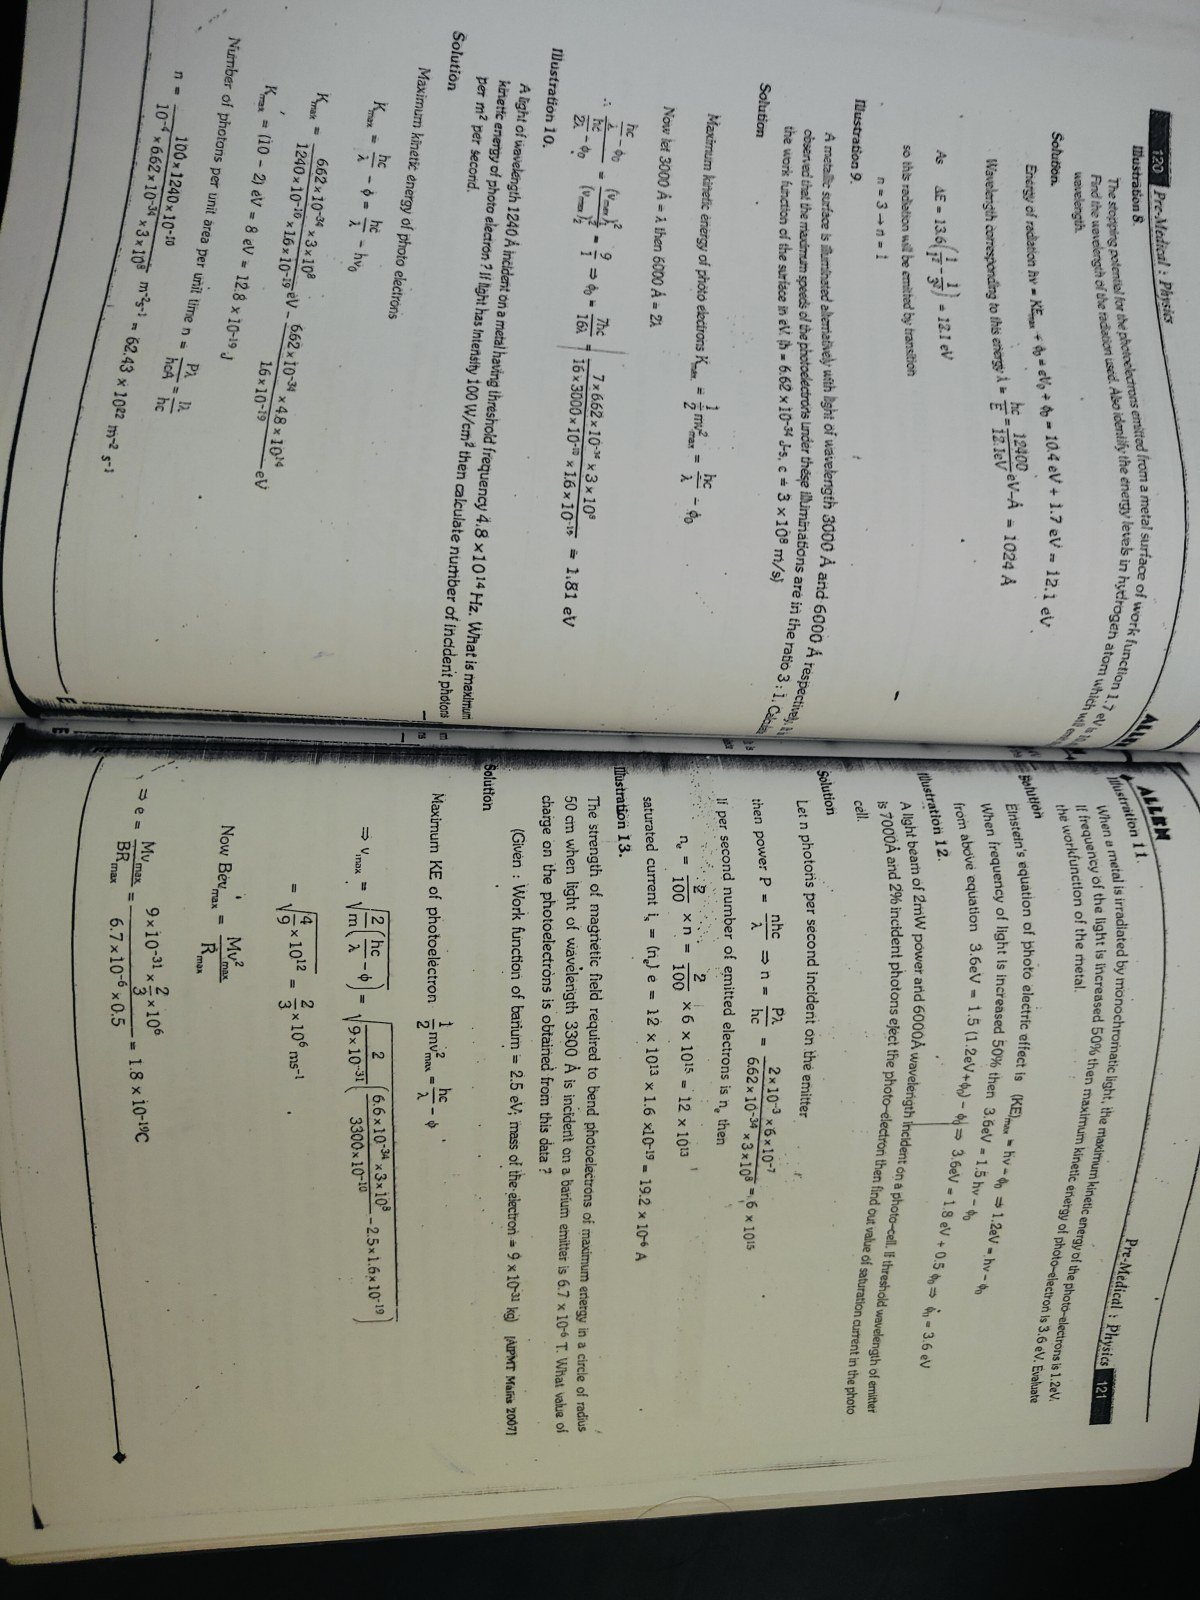 120 Pre-Medical : Physics
Illustration 8.
The stopping potential for the photoelectrons emitted from a metal surface of work function 1.7 eV is
Find the wavelength of the radiation used. Also identify the energy levels in hydrogen atom which will
wavelength.
Solution.
Energy of radiation hν = KEmax + ϕ0 = eV0 + ϕ0 = 10.4 eV + 1.7 eV = 12.1 eV
Wavelength corresponding to this energy λ = hc/E = 12400/12.1eV eV-Å = 1024 Å
As ΔE = 13.6(1/1² − 1/3²) = 12.1 eV
so this radiation will be emitted by transition
n = 3 → n = 1
Illustration 9.
A metallic surface is illuminated alternatively with light of wavelength 3000 Å and 6000 Å respectively.
observed that the maximum speeds of the photoelectrons under these illuminations are in the ratio 3 : 1.
the work function of the surface in eV. (h = 6.62 × 10⁻³⁴ J-s, c = 3 × 10⁸ m/s)
Solution
Maximum kinetic energy of photo electrons Kmax = 1/2 mv²max = hc/λ − ϕ0
Now let 3000 Å = λ then 6000 Å = 2λ
∴ (hc/λ − ϕ0)/(hc/2λ − ϕ0) = (vmax)1²/(vmax)2² = 9/1 ⇒ ϕ0 = 7hc/16λ = 7×6.62×10⁻³⁴×3×10⁸/16×3000×10⁻¹⁰×1.6×10⁻¹⁹ = 1.81 eV
Illustration 10.
A light of wavelength 1240 Å incident on a metal having threshold frequency 4.8 × 10¹⁴ Hz. What is maximum
kinetic energy of photo electron ? If light has intensity 100 W/cm² then calculate number of incident photons
per m² per second.
Solution
Maximum kinetic energy of photo electrons
Kmax = hc/λ − ϕ = hc/λ − hν0
Kmax = 6.62×10⁻³⁴×3×10⁸/1240×10⁻¹⁰×1.6×10⁻¹⁹ eV − 6.62×10⁻³⁴×4.8×10¹⁴/1.6×10⁻¹⁹ eV
Kmax = (10 − 2) eV = 8 eV = 12.8 × 10⁻¹⁹ J
Number of photons per unit area per unit time n = Pλ/hcA = Iλ/hc
n = 100×1240×10⁻¹⁰/10⁻⁴×6.62×10⁻³⁴×3×10⁸ m⁻²s⁻¹ = 62.43 × 10²² m⁻² s⁻¹
E
ALLEN
Pre-Medical : Physics 121
Illustration 11.
When a metal is irradiated by monochromatic light, the maximum kinetic energy of the photo-electrons is 1.2eV.
If frequency of the light is increased 50% then maximum kinetic energy of photo-electron is 3.6 eV. Evaluate
the workfunction of the metal.
Solution
Einstein's equation of photo electric effect is (KE)max = hν − ϕ0 ⇒ 1.2eV = hν − ϕ0
When frequency of light is increased 50% then 3.6eV = 1.5 hν − ϕ0
from above equation 3.6eV = 1.5 (1.2eV+ϕ0) − ϕ0 ⇒ 3.6eV = 1.8 eV + 0.5 ϕ0 ⇒ ϕ0 = 3.6 eV
Illustration 12.
A light beam of 2mW power and 6000Å wavelength incident on a photo-cell. If threshold wavelength of emitter
is 7000Å and 2% incident photons eject the photo-electron then find out value of saturation current in the photo
cell.
Solution
Let n photons per second incident on the emitter
then power P = nhc/λ ⇒ n = Pλ/hc = 2×10⁻³×6×10⁻⁷/6.62×10⁻³⁴×3×10⁸ = 6 × 10¹⁵
If per second number of emitted electrons is ne then
ne = 2/100 × n = 2/100 × 6 × 10¹⁵ = 12 × 10¹³
saturated current is = (ne) e = 12 × 10¹³ × 1.6 ×10⁻¹⁹ = 19.2 × 10⁻⁶ A
Illustration 13.
The strength of magnetic field required to bend photoelectrons of maximum energy in a circle of radius
50 cm when light of wavelength 3300 Å is incident on a barium emitter is 6.7 × 10⁻⁶ T. What value of
charge on the photoelectrons is obtained from this data ?
(Given : Work function of barium = 2.5 eV; mass of the electron = 9 × 10⁻³¹ kg) [AIPMT Mains 2007]
Solution
Maximum KE of photoelectron 1/2 mv²max = hc/λ − ϕ
⇒ vmax = √(2/m (hc/λ − ϕ)) = √(2/9×10⁻³¹ (6.6×10⁻³⁴×3×10⁸/3300×10⁻¹⁰ − 2.5×1.6×10⁻¹⁹))
= √(4/9 × 10¹²) = 2/3 × 10⁶ ms⁻¹
Now Bevmax = Mv²max/Rmax
⇒ e = Mvmax/BRmax = 9×10⁻³¹×2/3×10⁶/6.7×10⁻⁶×0.5 = 1.8 × 10⁻¹⁹C
E